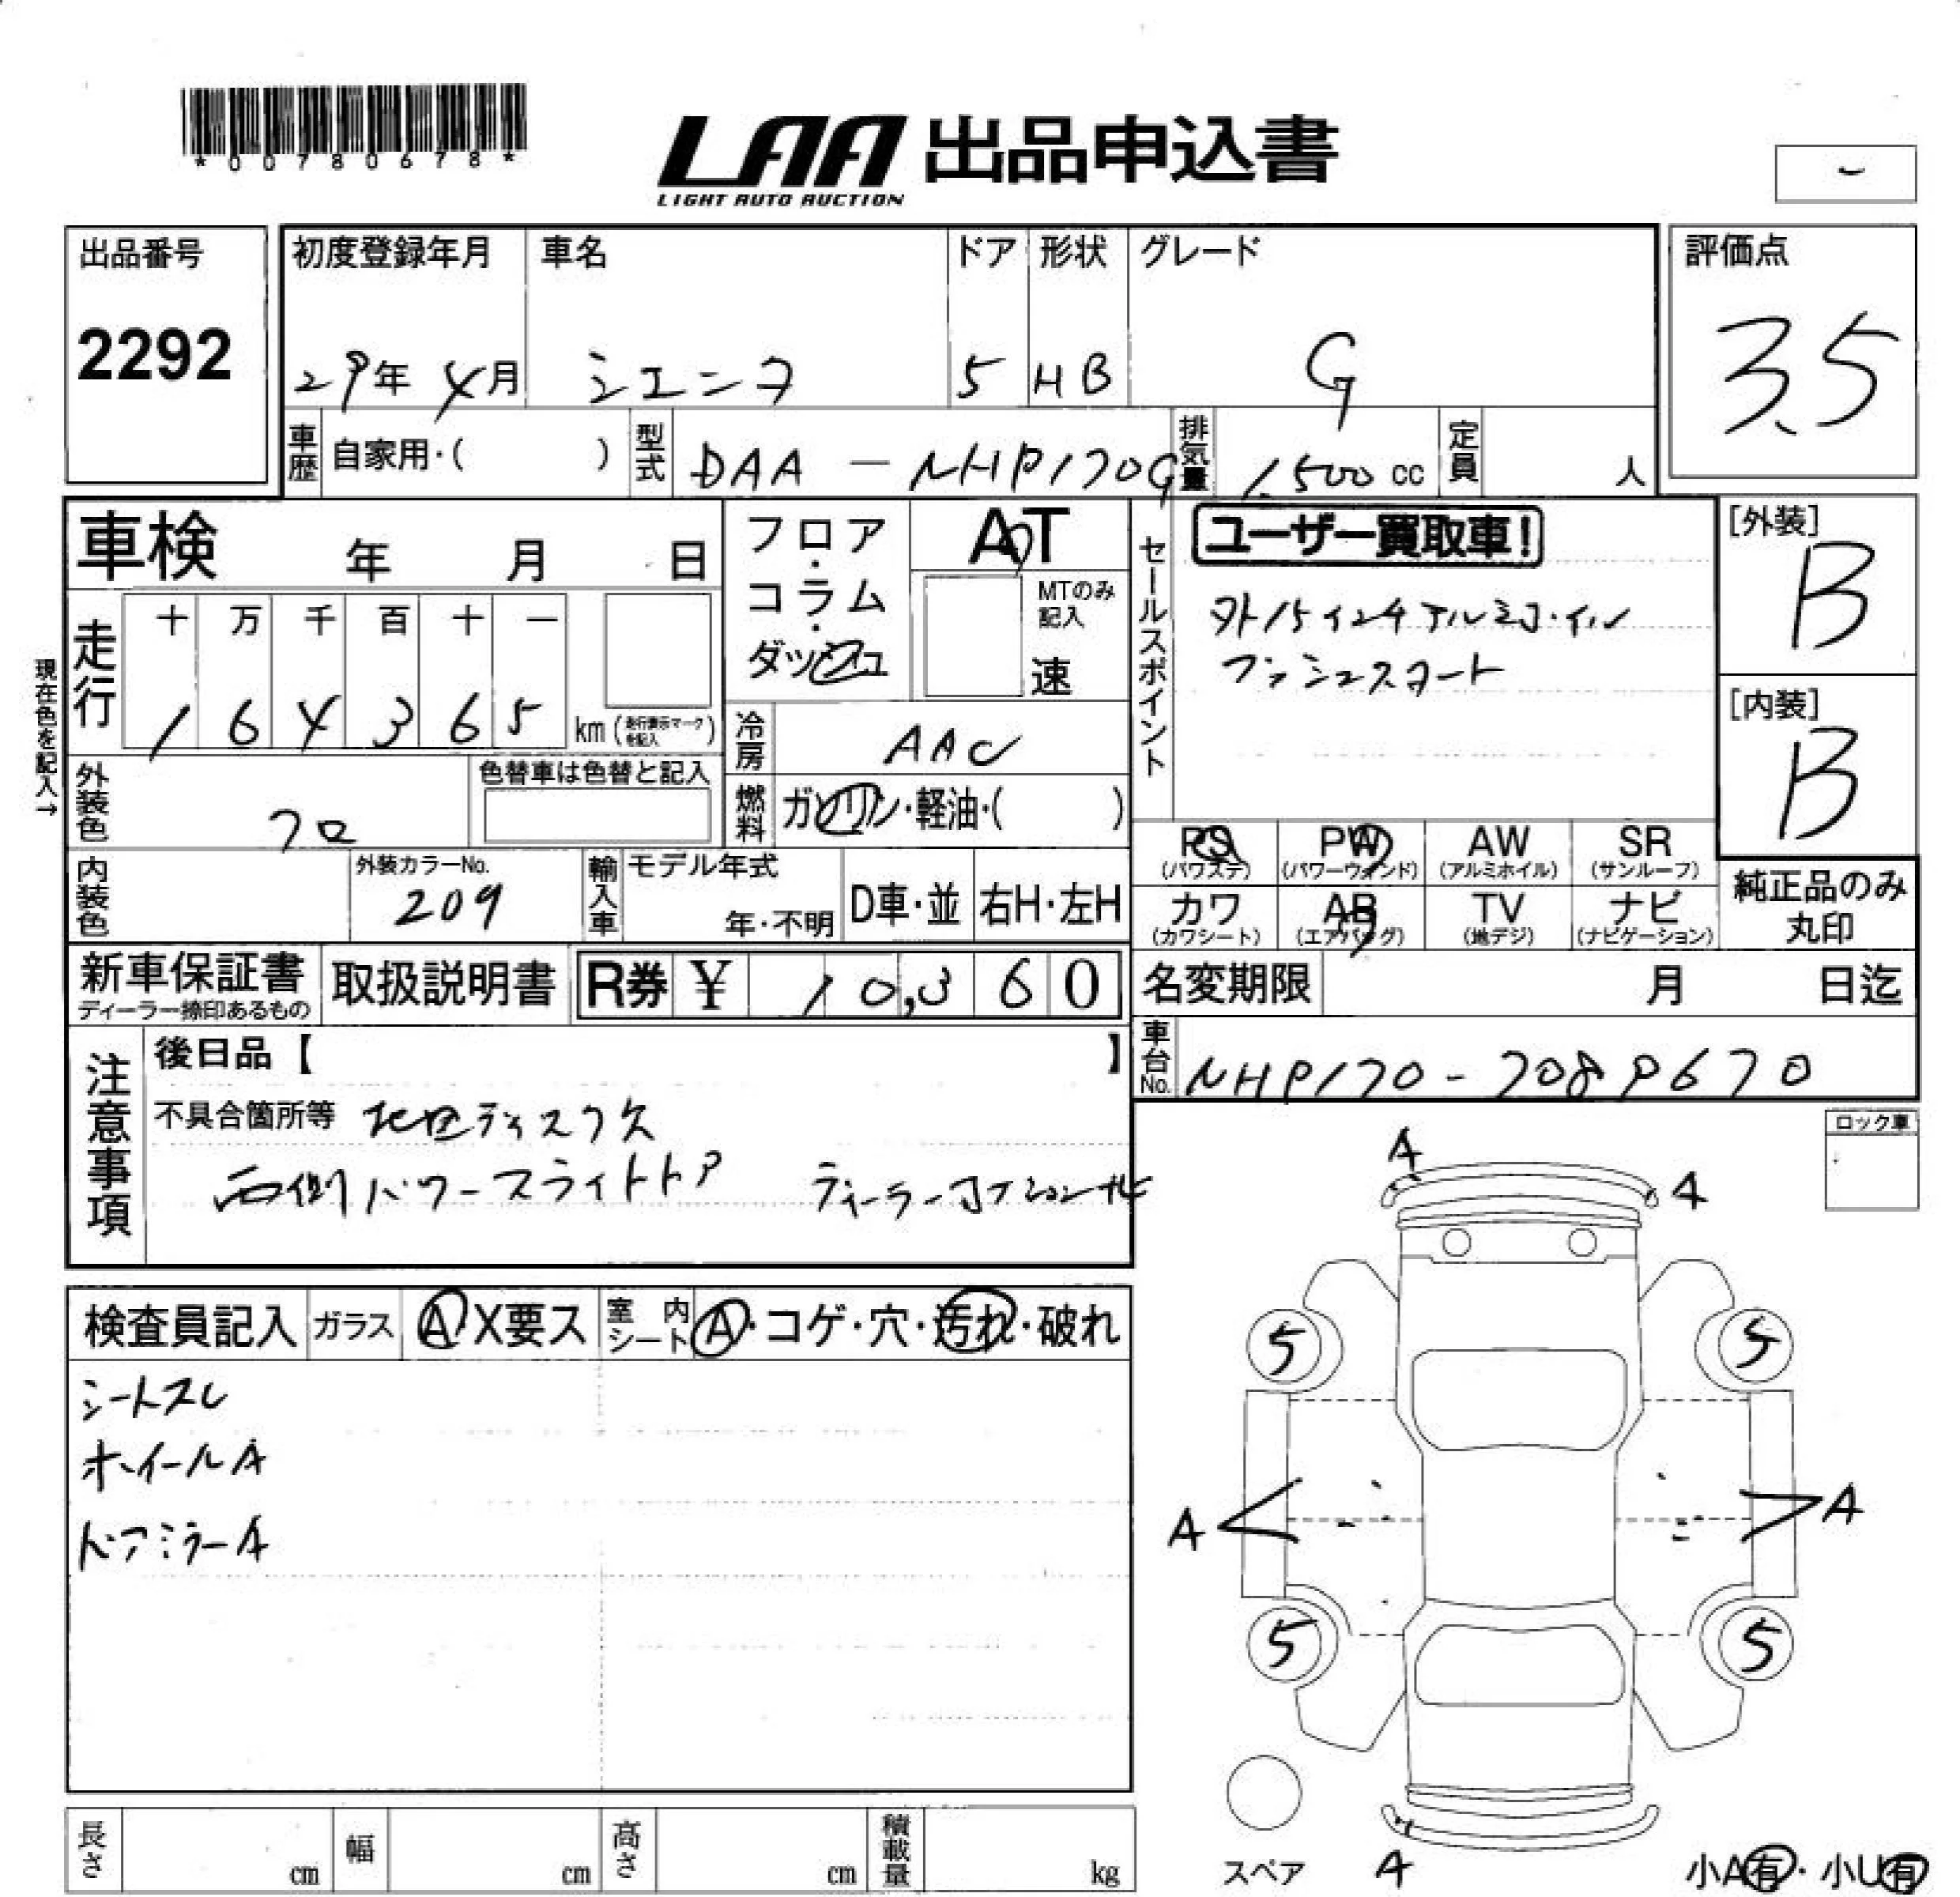 *00780678*
LAA 出品申込書
LIGHT AUTO AUCTION
出品番号
2292
初度登録年月
29年 4月
車名
シエンタ
ドア
5
形状
HB
グレード
G
評価点
3.5
車歴 自家用・( )
型式 DAA-NHP170G
排気量 1,500 cc
定員 人
車検 年 月 日
フロア・コラム・ダッシュ
AT
MTのみ記入
速
セールスポイント
ユーザー買取車!
外15インチアルミホイル
プッシュスタート
[外装]
B
[内装]
B
現在色を記入→
走行
十 万 千 百 十 一
1 6 4 3 6 5
km(走行表示マークを記入)
冷房 AAC
外装色 クロ
色替車は色替と記入
燃料 ガソリン・軽油・( )
内装色
外装カラーNo.
209
輸入車
モデル年式
年・不明
D車・並
右H・左H
PS
(パワステ)
PW
(パワーウィンド)
AW
(アルミホイル)
SR
(サンルーフ)
カワ
(カワシート)
AB
(エアバッグ)
TV
(地デジ)
ナビ
(ナビゲーション)
純正品のみ
丸印
新車保証書
ディーラー捺印あるもの
取扱説明書
R券 ¥ 10,360
名変期限 月 日迄
注意事項
後日品【 】
不具合箇所等 地図ディスク欠
両側パワースライドドア ディーラーオプションナビ
車台No. NHP170-7089670
ロック車
A
A
検査員記入
ガラス A X要ス
室内シート A・コゲ・穴・汚れ・破れ
シートスレ
ホイールA
ドアミラーA
5
5
A
A
5
5
スペア
A
小A有・小U有
長さ cm
幅 cm
高さ cm
積載量 kg